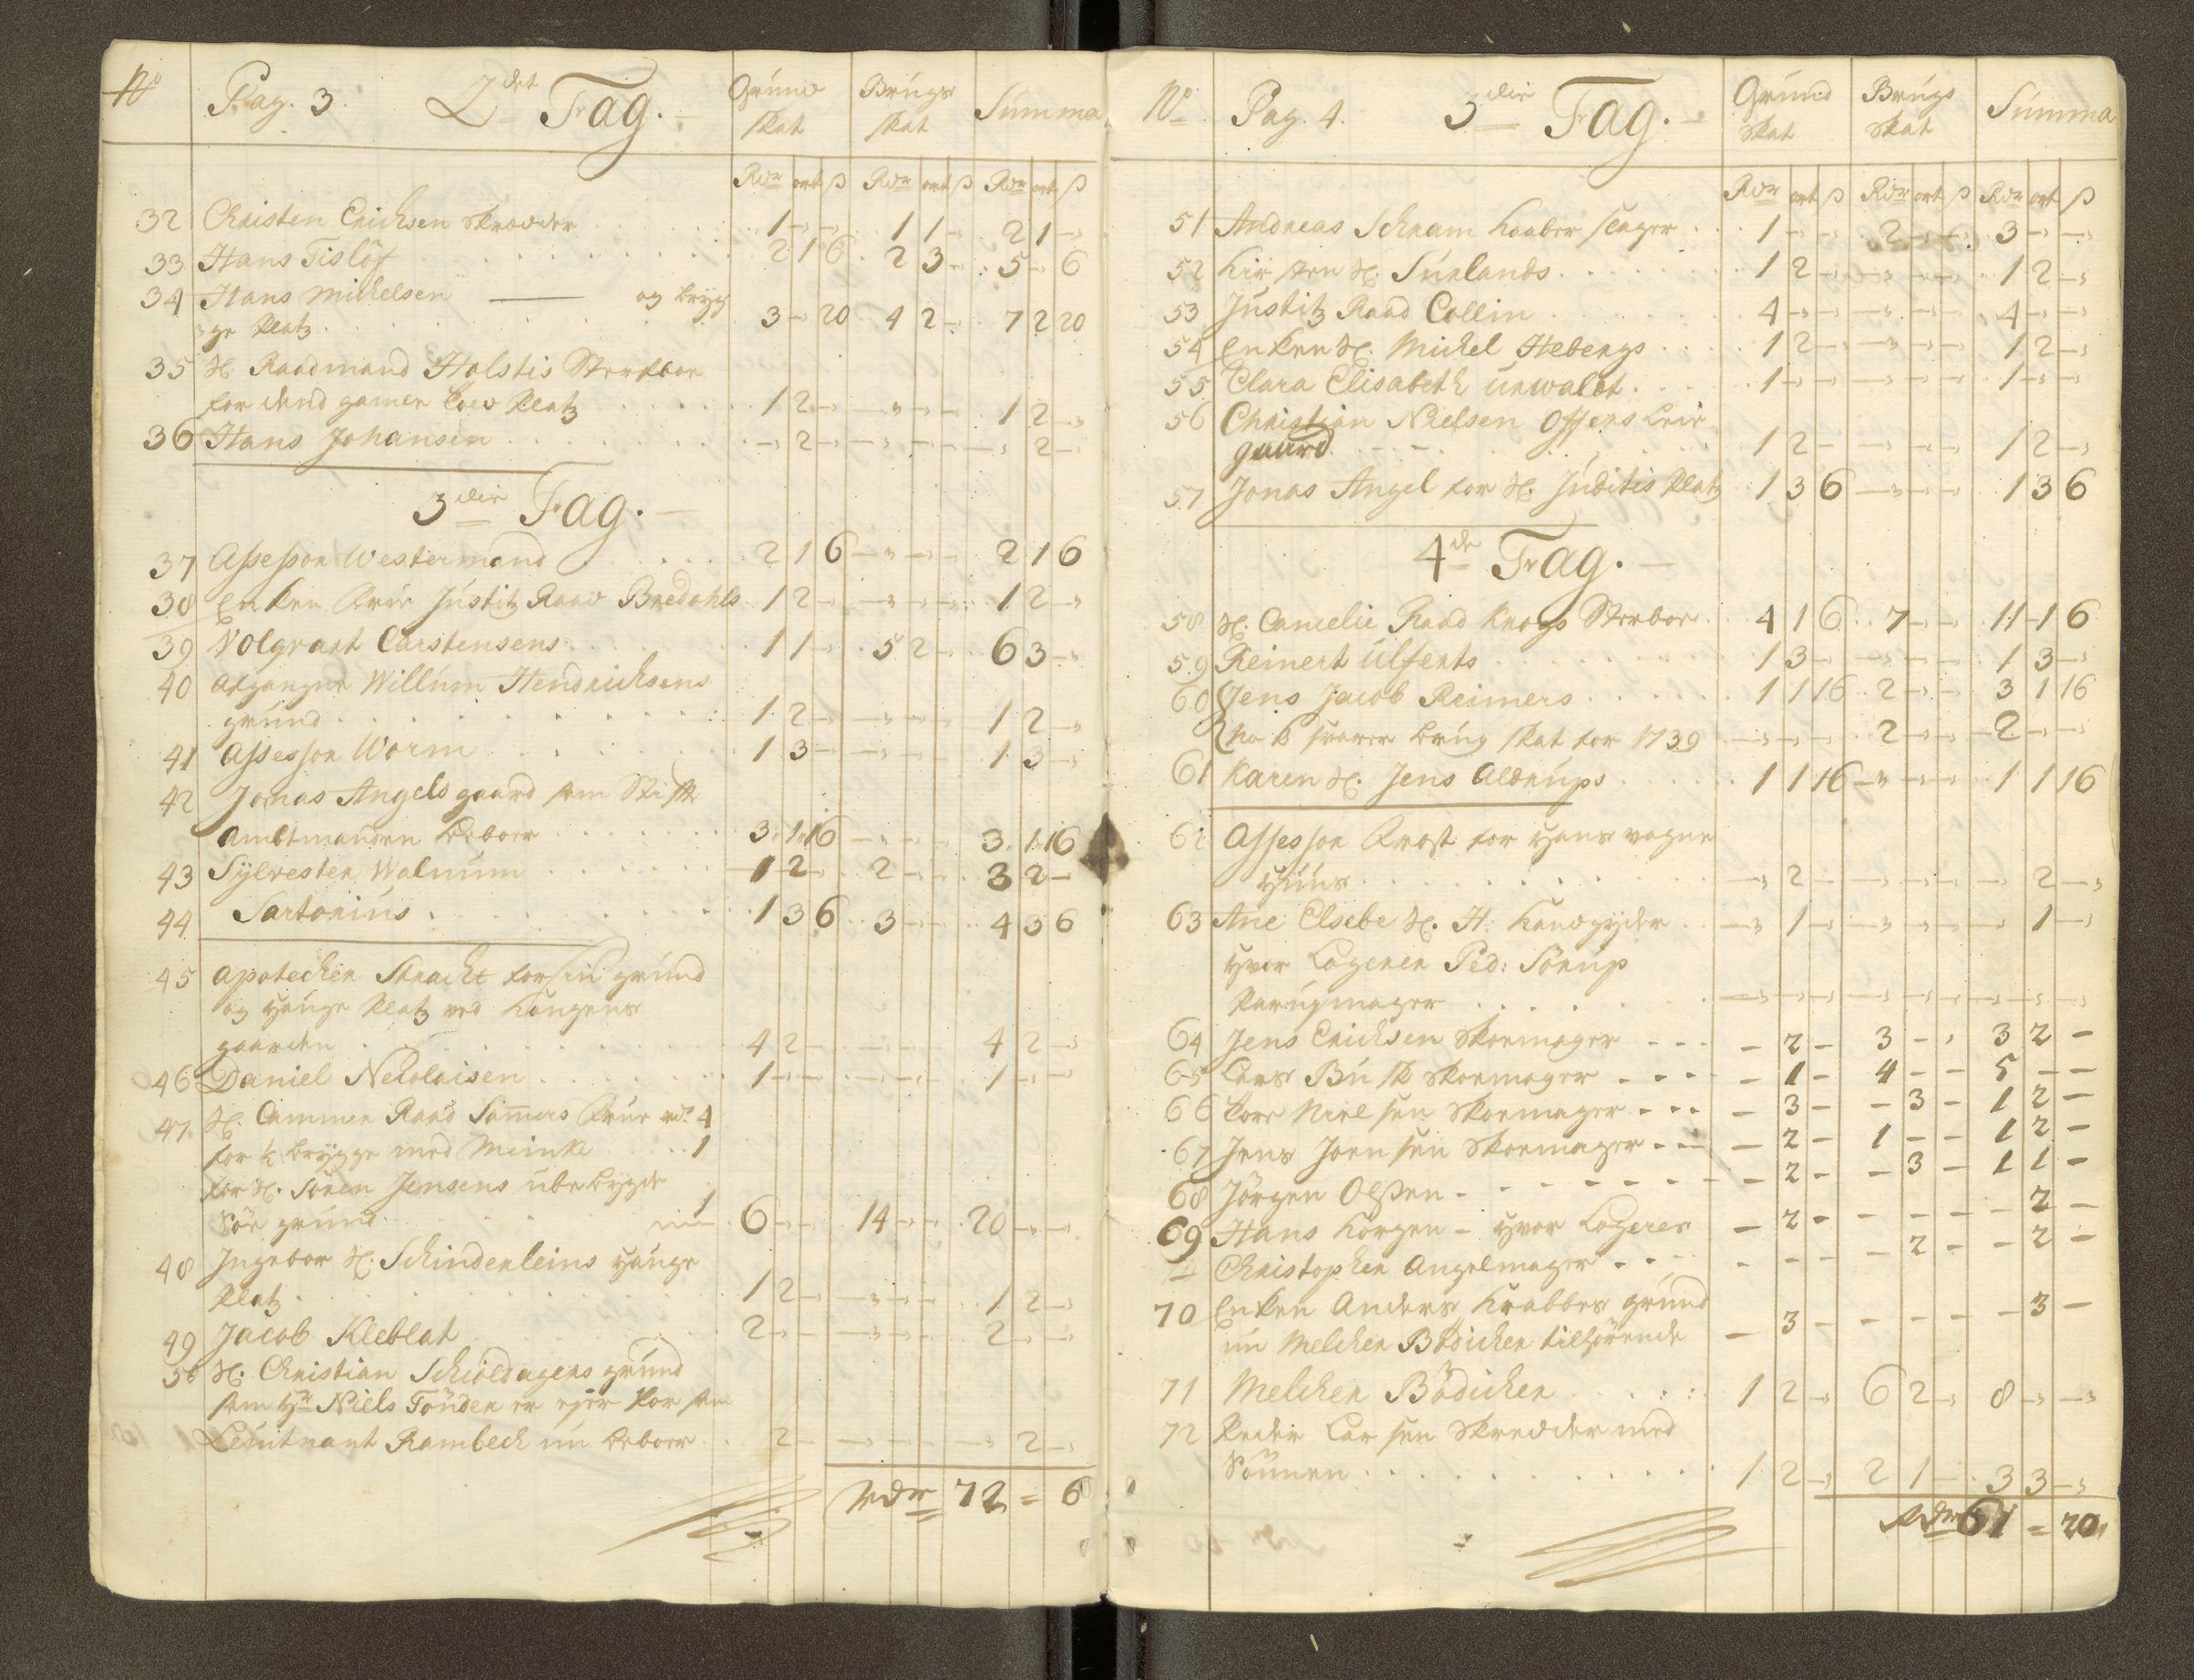 No Pag. 3. 2det Fag. Grund skat Brugs skat Summa
Rdr ort ß Rdr ort ß Rdr ort ß
32 Christen Erichsen Skredder 1 - - 1 1 - 2 1 -
33 Hans Tislöf 2 1 6 2 3 - 5 - 6
34 Hans Michelsen — og brÿg
ge Platz 3 - 20 4 2 - 7 2 20
35 Sl. Raadmand Holstis Sterfboe
for dend gamle Platz 1 2 - - - - 1 2 -
36 Hans Johansen - 2 - - - - - 2 -
3die Fag.
37 Assessor Westermand 2 1 6 - - - 2 1 6
38 Enken Frue Justitz Raad Bredahls 1 2 - - - - 1 2 -
39 Volgvart Carstensens 1 1 - 5 2 - 6 3 -
40 Afgangne Willum Hendrichsens
grund 1 2 - - - - 1 2 -
41 Assessor Worm 1 3 - - - - 1 3 -
42 Jonas Angels gaard som Stift
Ambtmanden beboer 3 1 16 - - - 3 1 16
43 Sÿlvester Walnum 1 2 - 2 - - 3 2 -
44 Sartorius 1 3 6 3 - - 4 3 6
45 Apotecher Stracht for sin grund
og hauge Platz ved Kongens
gaarden 4 2 - - - - 4 2 -
46 Daniel Nicolaisen 1 - - - - - 1 - -
47 Sl. Cammer Raad Sommers Frue rdr 4
for ½ brÿgge med Meinke 1
for Sl. Sören Jensens ubebÿgde
Söe grund 1 6 - - 14 - - 20 - -
48 Ingebor Sl. Schinderleins hauge
Platz 1 2 - - - - 1 2 -
49 Jacob Kleblat 2 - - - - - 2 - -
50 Sl. Christian Schioldagers grund
som Hr Niels Tönder er ejer for som
Leuitnant Rambech nu beboer 2 - - - - 2 -
Rdr 72 = 6
No Pag. 4. 3die Fag. Grund skat Brugs skat Summa
Rdr ort ß Rdr ort ß Rdr ort ß
51 Andreas Schram Kaaber slager 1 - - 2 - - 3 - -
52 Kirsten Sl. Surlands 1 2 - - - - 1 2 -
53 Justitz Raad Collin 4 - - - - - 4 - -
54 Enken Sl. Michel Hebergs 1 2 - - - - 1 2 -
55 Clara Elisabeth Urwaldt 1 - - - - - 1 - -
56 Christian Nielsen Offers Leie
gaard 1 2 - - - - 1 2 -
57 Jonas Angel for Sl. Juditis Platz 1 3 6 - - - 1 3 6
4de Fag.
58 Sl. Cancelie Raad Krogs Sterboe 4 1 6 7 - - 11 1 6
59 Reinert Ulferts 1 3 - - - - 1 3 -
60 Jens Jacob Reimers 1 1 16 2 - - 3 1 16
svarer brug skat for 1739 - - - 2 - - 2 - -
61 Karen Sl. Jens Aldrups 1 1 16 - - - 1 1 16
62 Assessor Frost for hans vogne
huus - 2 - - - - - 2 -
63 Ane Elsebe Sl. H. Kandgyder - 1 - - - - - 1 -
hvor Logerer Ped: Sorup
Parugmager - - - - - - - - -
64 Jens Erichsen Skoemager - 2 - 3 - - 3 2 -
65 Lars Busk Skoemager - 1 - 4 - - 5 - -
66 Tore Nielsen Skoemager - 3 - - 3 - 1 2 -
67 Jens Joensen Skoemager - 2 - 1 - - 1 2 -
68 Jörgen Olssen - 2 - - 3 - 1 1 -
69 Hans Korgen - hvor Logerer - 2 - - - - - 2 -
Christopher Angelmager - - - - 2 - - 2 -
70 Enken Anders Krabbes grund
nu Melcher Bödicher tilhörende - 3 - - - - - 3 -
71 Melcher Bödicher 1 2 - 6 2 - 8 - -
72 Peder Larsen Skredder med
Sönnen 1 2 - 2 1 - 3 3 -
Rdr 61 = 20